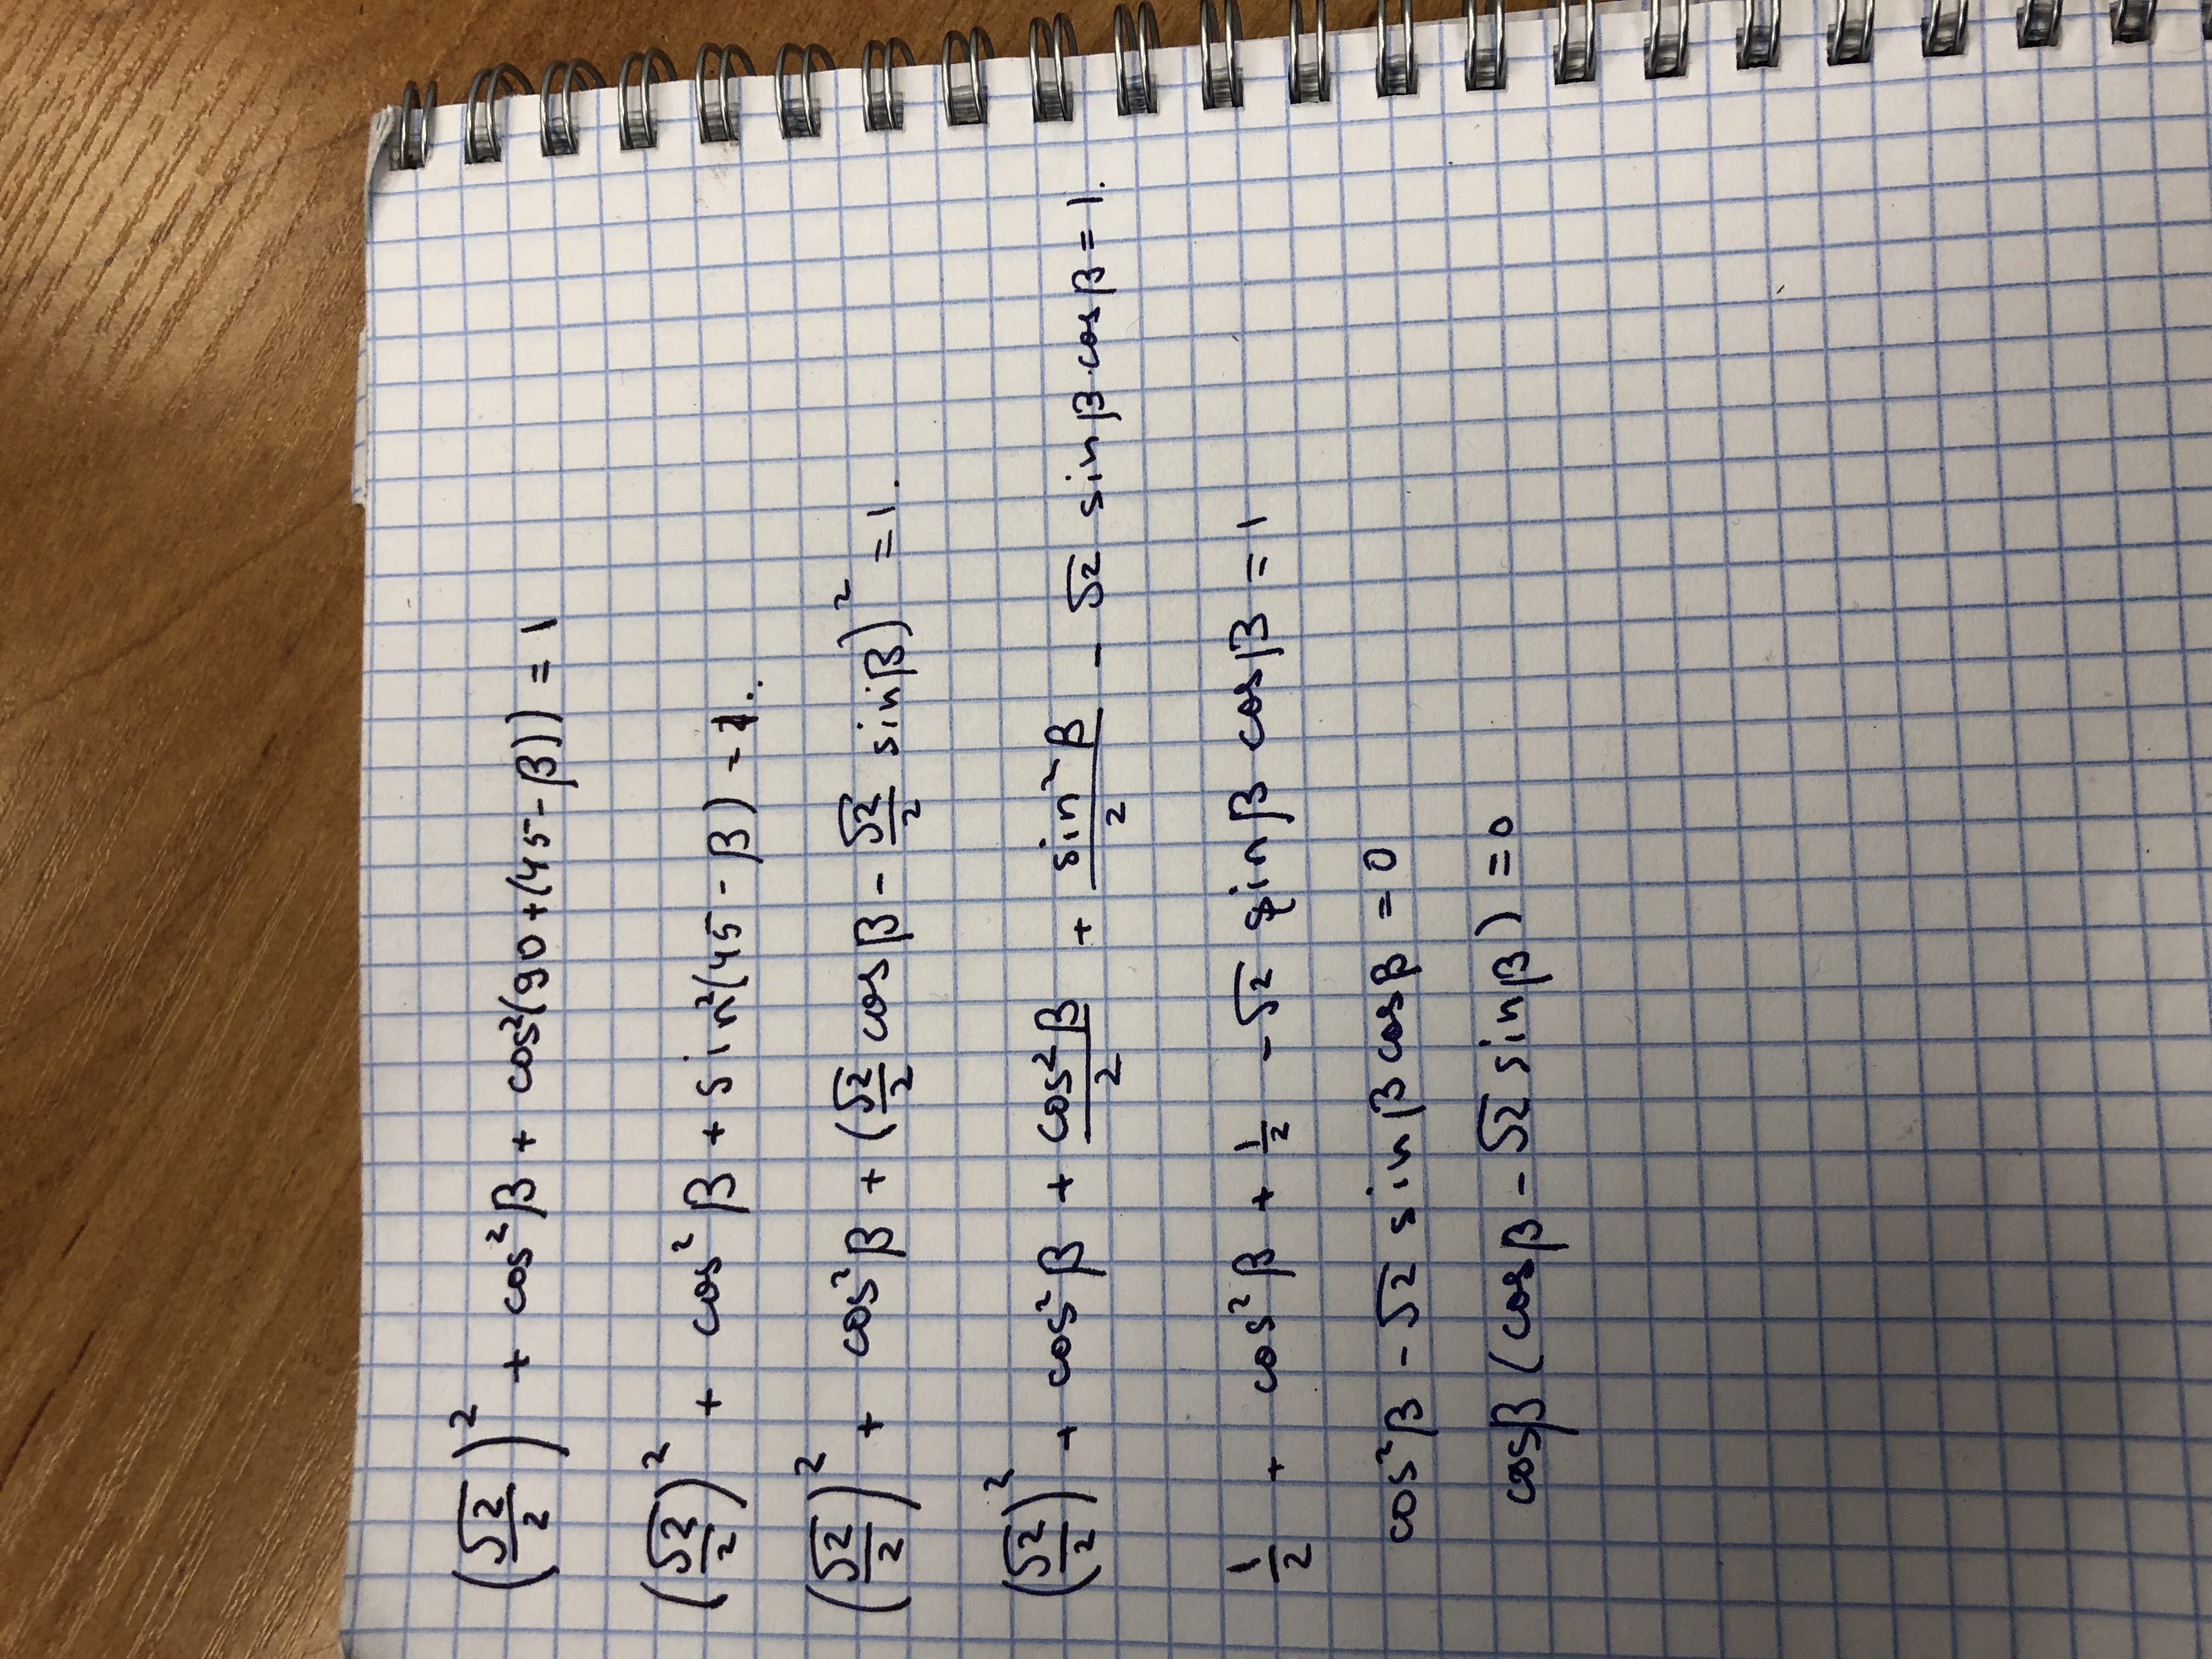 (√2/2)² + cos²β + cos²(90+(45-β)) = 1
(√2/2)² + cos²β + sin²(45-β) = 1.
(√2/2)² + cos²β + (√2/2 cosβ - √2/2 sinβ)² = 1.
(√2/2)² + cos²β + cos²β/2 + sin²β/2 - √2 sinβ·cosβ = 1.
1/2 + cos²β + 1/2 - √2 sinβ cosβ = 1
cos²β - √2 sinβ cosβ = 0
cosβ (cosβ - √2 sinβ) = 0